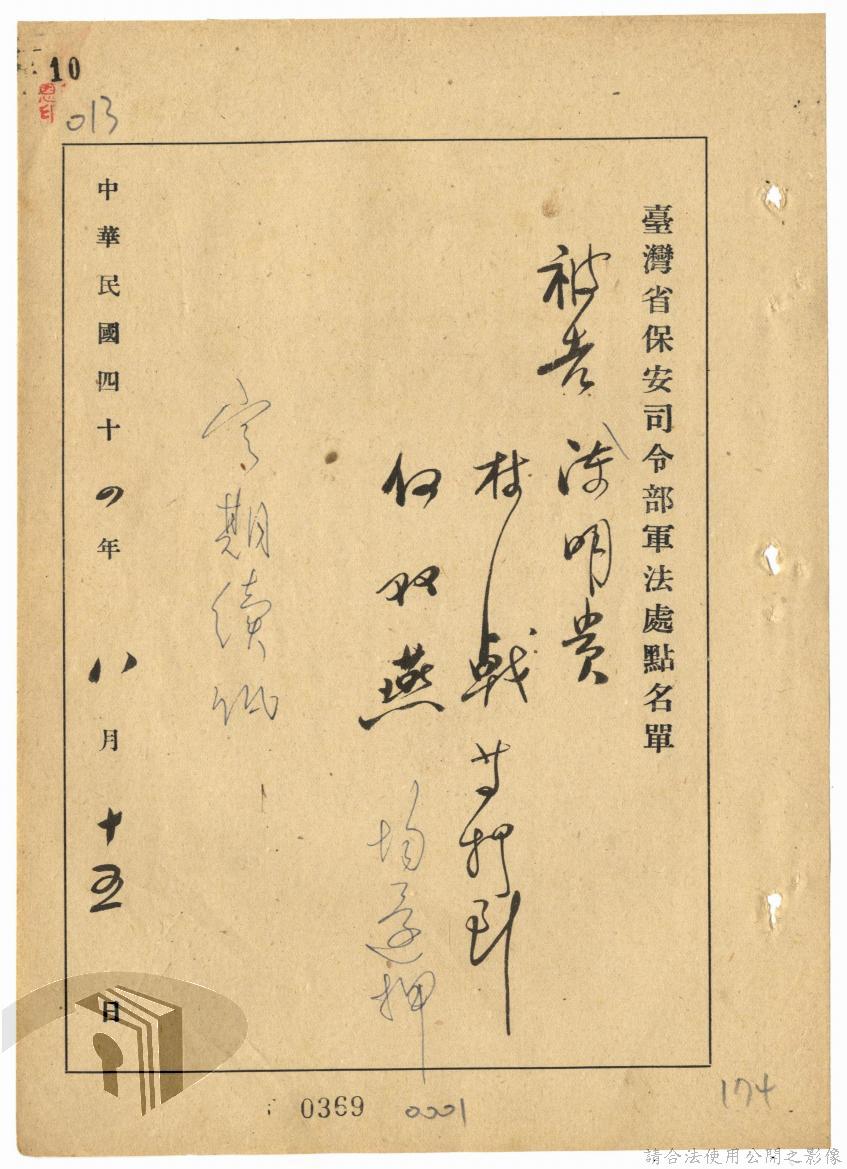 10
013
臺灣省保安司令部軍法處點名單
被告 陳明貴
杜戟 等押到
何双燕 均還押
定期續訊
中華民國四十四年八月十五日
0369
0001
174
請合法使用公開之影像